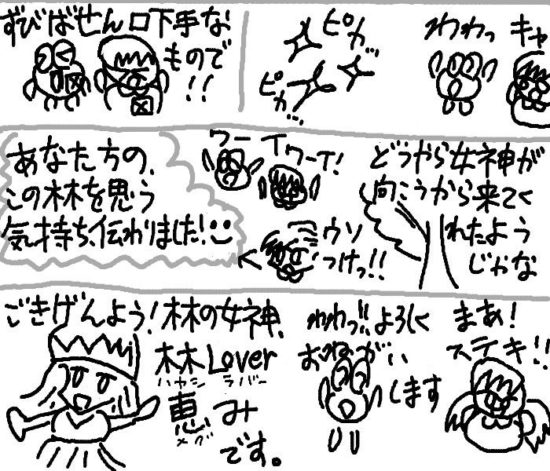 キャ
わわっ
ピカッ
ピカッ
ずびばせん口下手な
もので
!!
どうやら女神が
向こうから来てく
れたよう
じゃな
ワーイワーイ!
ウソ
つけっ!!
あなた方の、
この林を思う
気持ち、伝わりました!
まあ!
ステキ!!
わわっ!!よろしく
おねがい
します
ごきげんよう!林の女神、
林Lover
ハヤシラバー
恵み
メグ
です。